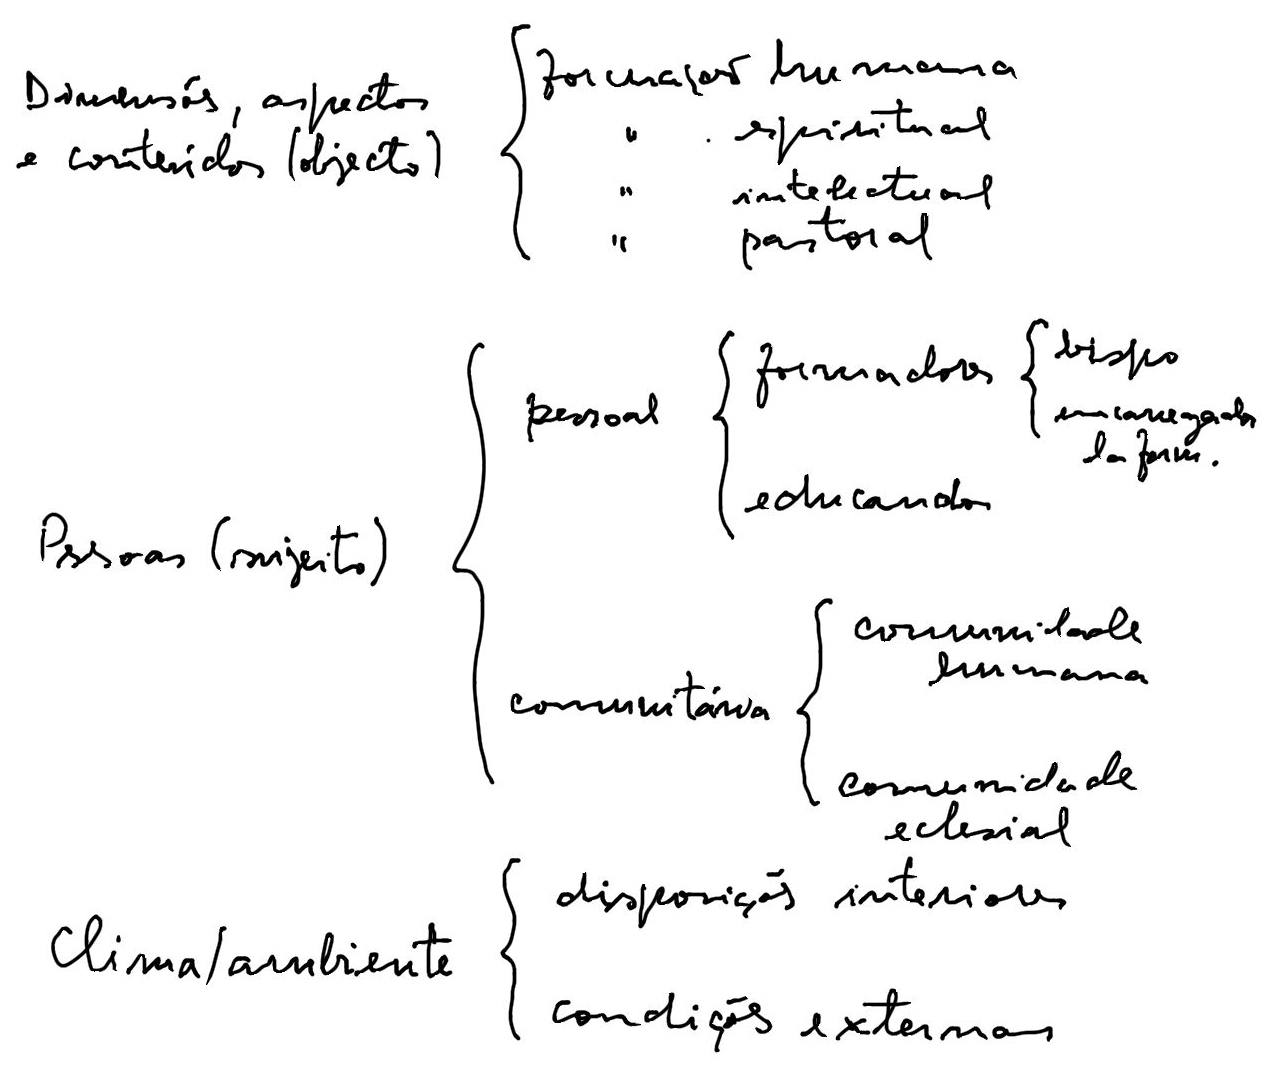 Dimensões, aspectos
e conteúdos (objecto)
formação humana
" espiritual
" intelectual
" pastoral
Pessoas (sujeito)
pessoal
formadores
bispo
encarregados
da form.
educandos
comunitária
comunidade
humana
comunidade
eclesial
Clima/ambiente
disposições interiores
condições externas